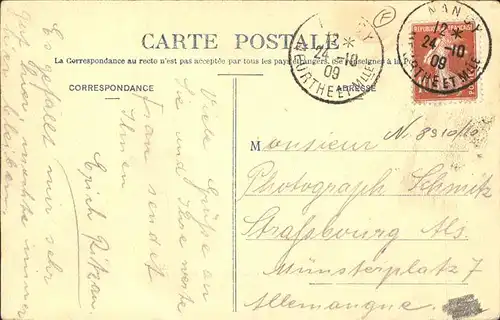 CARTE POSTALE
La Correspondance au recto n'est pas acceptée par tous les pays étrangers. (Se renseignez à la Poste)
CORRESPONDANCE
ADRESSE
NANCY
12 *
24 -10
09
MEURTHE ET MLLE
RÉPUBLIQUE FRANÇAISE
N. 8910/10
Monsieur
Photograph Schmitz
Strassbourg Als.
Münsterplatz 7
Allemangne.
Viele Grüße an
Sie und Ihre werte
Frau sendet
Ihnen
Erich Ritzau.
Es gefällt mir sehr
gut hier möchte immer
bleiben.